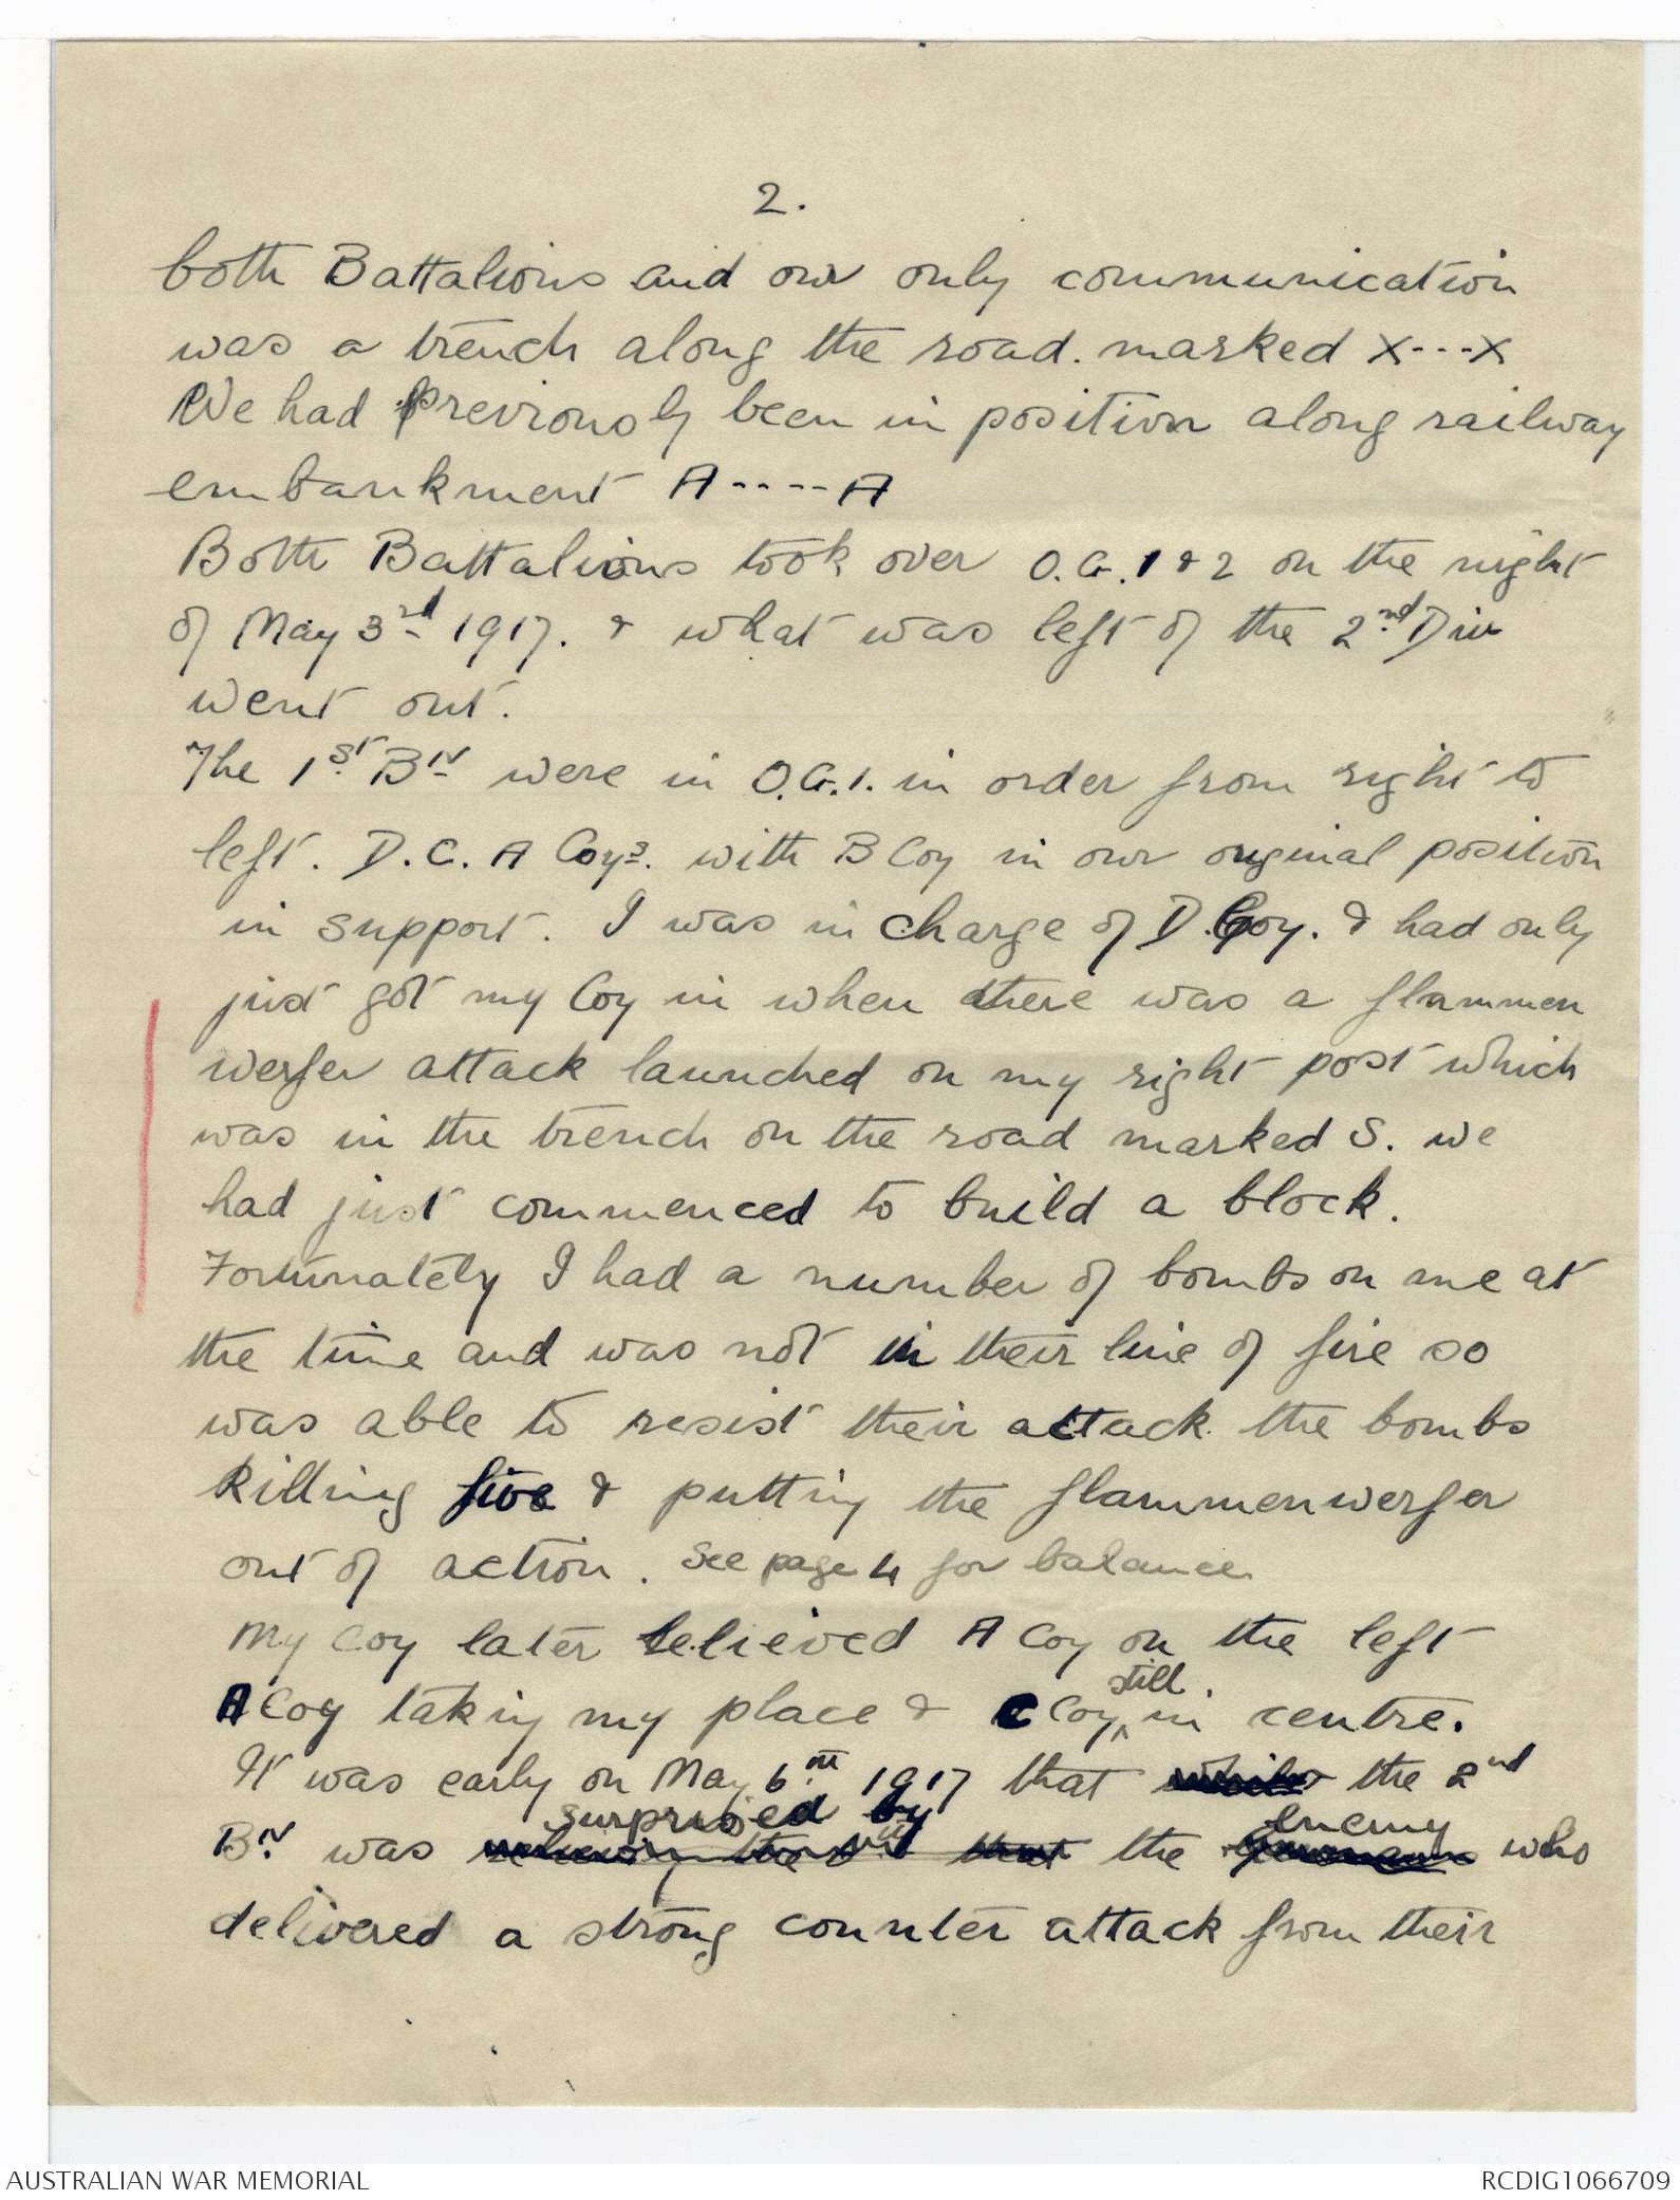 2.
both Battalions and our only communication
was a trench along the road. marked X---X
We had previously been in position along railway
embankment A----A
Both Battalions took over O.G.1 & 2 on the night
of May 3rd 1917. & what was left of the 2nd Div
went out.
The 1st BN were in O.G.1. in order from right to
left. D.C. A Coys. with B Coy in our original position
in support. I was in charge of D.Coy. & had only
just got my Coy in when there was a flammen
werfer attack launched on my right post which
was in the trench on the road marked S. we
had just commenced to build a block.
Fortunately I had a number of bombs on me at
the time and was not in their line of fire so
was able to resist their attack. the bombs
killing five & putting the flammenwerfer
out of action. See page 4 for balance
My Coy later relieved A Coy on the left
A Coy taking my place & C Coy still in centre.
It was early on May 6th 1917 that the 2nd
BN. was surprised by the enemy who
delivered a strong counter attack from their
AUSTRALIAN WAR MEMORIAL
RCDIG1066709